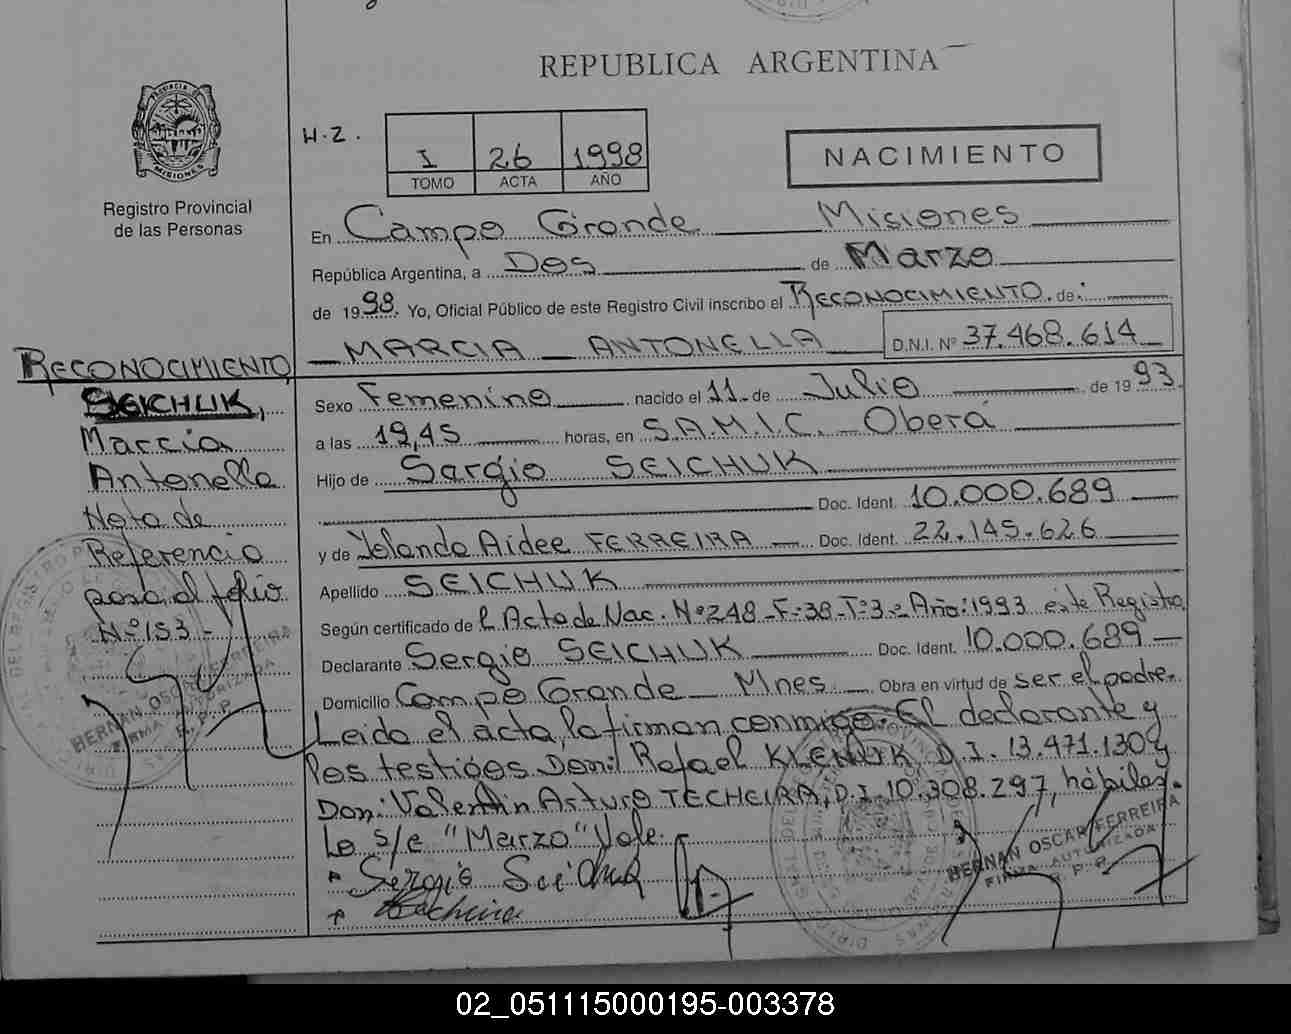 REPUBLICA ARGENTINA
PROVINCIA DE
MISIONES
Registro Provincial
de las Personas
H.Z.
I 26 1998
TOMO ACTA AÑO
NACIMIENTO
En Campo Grande Misiones
República Argentina, a Dos de Marzo
de 1998. Yo, Oficial Público de este Registro Civil inscribo el RECONOCIMIENTO. de:
MARCIA ANTONELLA D.N.I. Nº 37.468.614
RECONOCIMIENTO
SEICHUK,
Marcia
Antonella
Nota de
Referencia
pasa al folio
Nº 153-
Sexo Femenino nacido el 11 de Julio de 1993.
a las 19,45 horas, en S.A.M.I.C. Oberá
Hijo de Sargio SEICHUK
Doc. Ident. 10.000.689
y de Yolanda Aidee FERREIRA Doc. Ident. 22.145.626
Apellido SEICHUK
Según certificado de l Acta de Nac. Nº248-F:38-Tº3- Año:1993 este Registro
Declarante Sergio SEICHUK Doc. Ident. 10.000.689
Domicilio Campo Grande Mnes Obra en virtud de ser el padre.
Leida el acta, la firman conmigo. El declarante y
los testigos Don: Rafael KLENIUK, D.I. 13.471.130 y
Don: Valentin Arturo TECHEIRA, D.I. 10.308.297, hábiles.
Lo s/e "Marzo" Vale.
Sergio Seichuk
Techeira
HERNAN OSCAR FERREIRA
FIRMA AUTORIZADA
R. P. P.
HERNAN OSCAR FERREIRA
FIRMA AUTORIZADA
R. P. P.
02_051115000195-003378